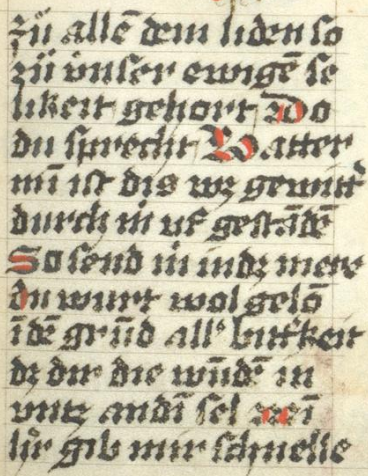 zů allē dem liden so
zů vnser ewigē se
likeit gehort Do
du sprecht Vatter
mī ist dis wz gewitt̾
durch in vf gestādē
So send in indz mere
du wurt wol gelō
īdē grūd all' bitt̾keit
dz dir die wūdē in
vntz andī sel
gib mir schnelle